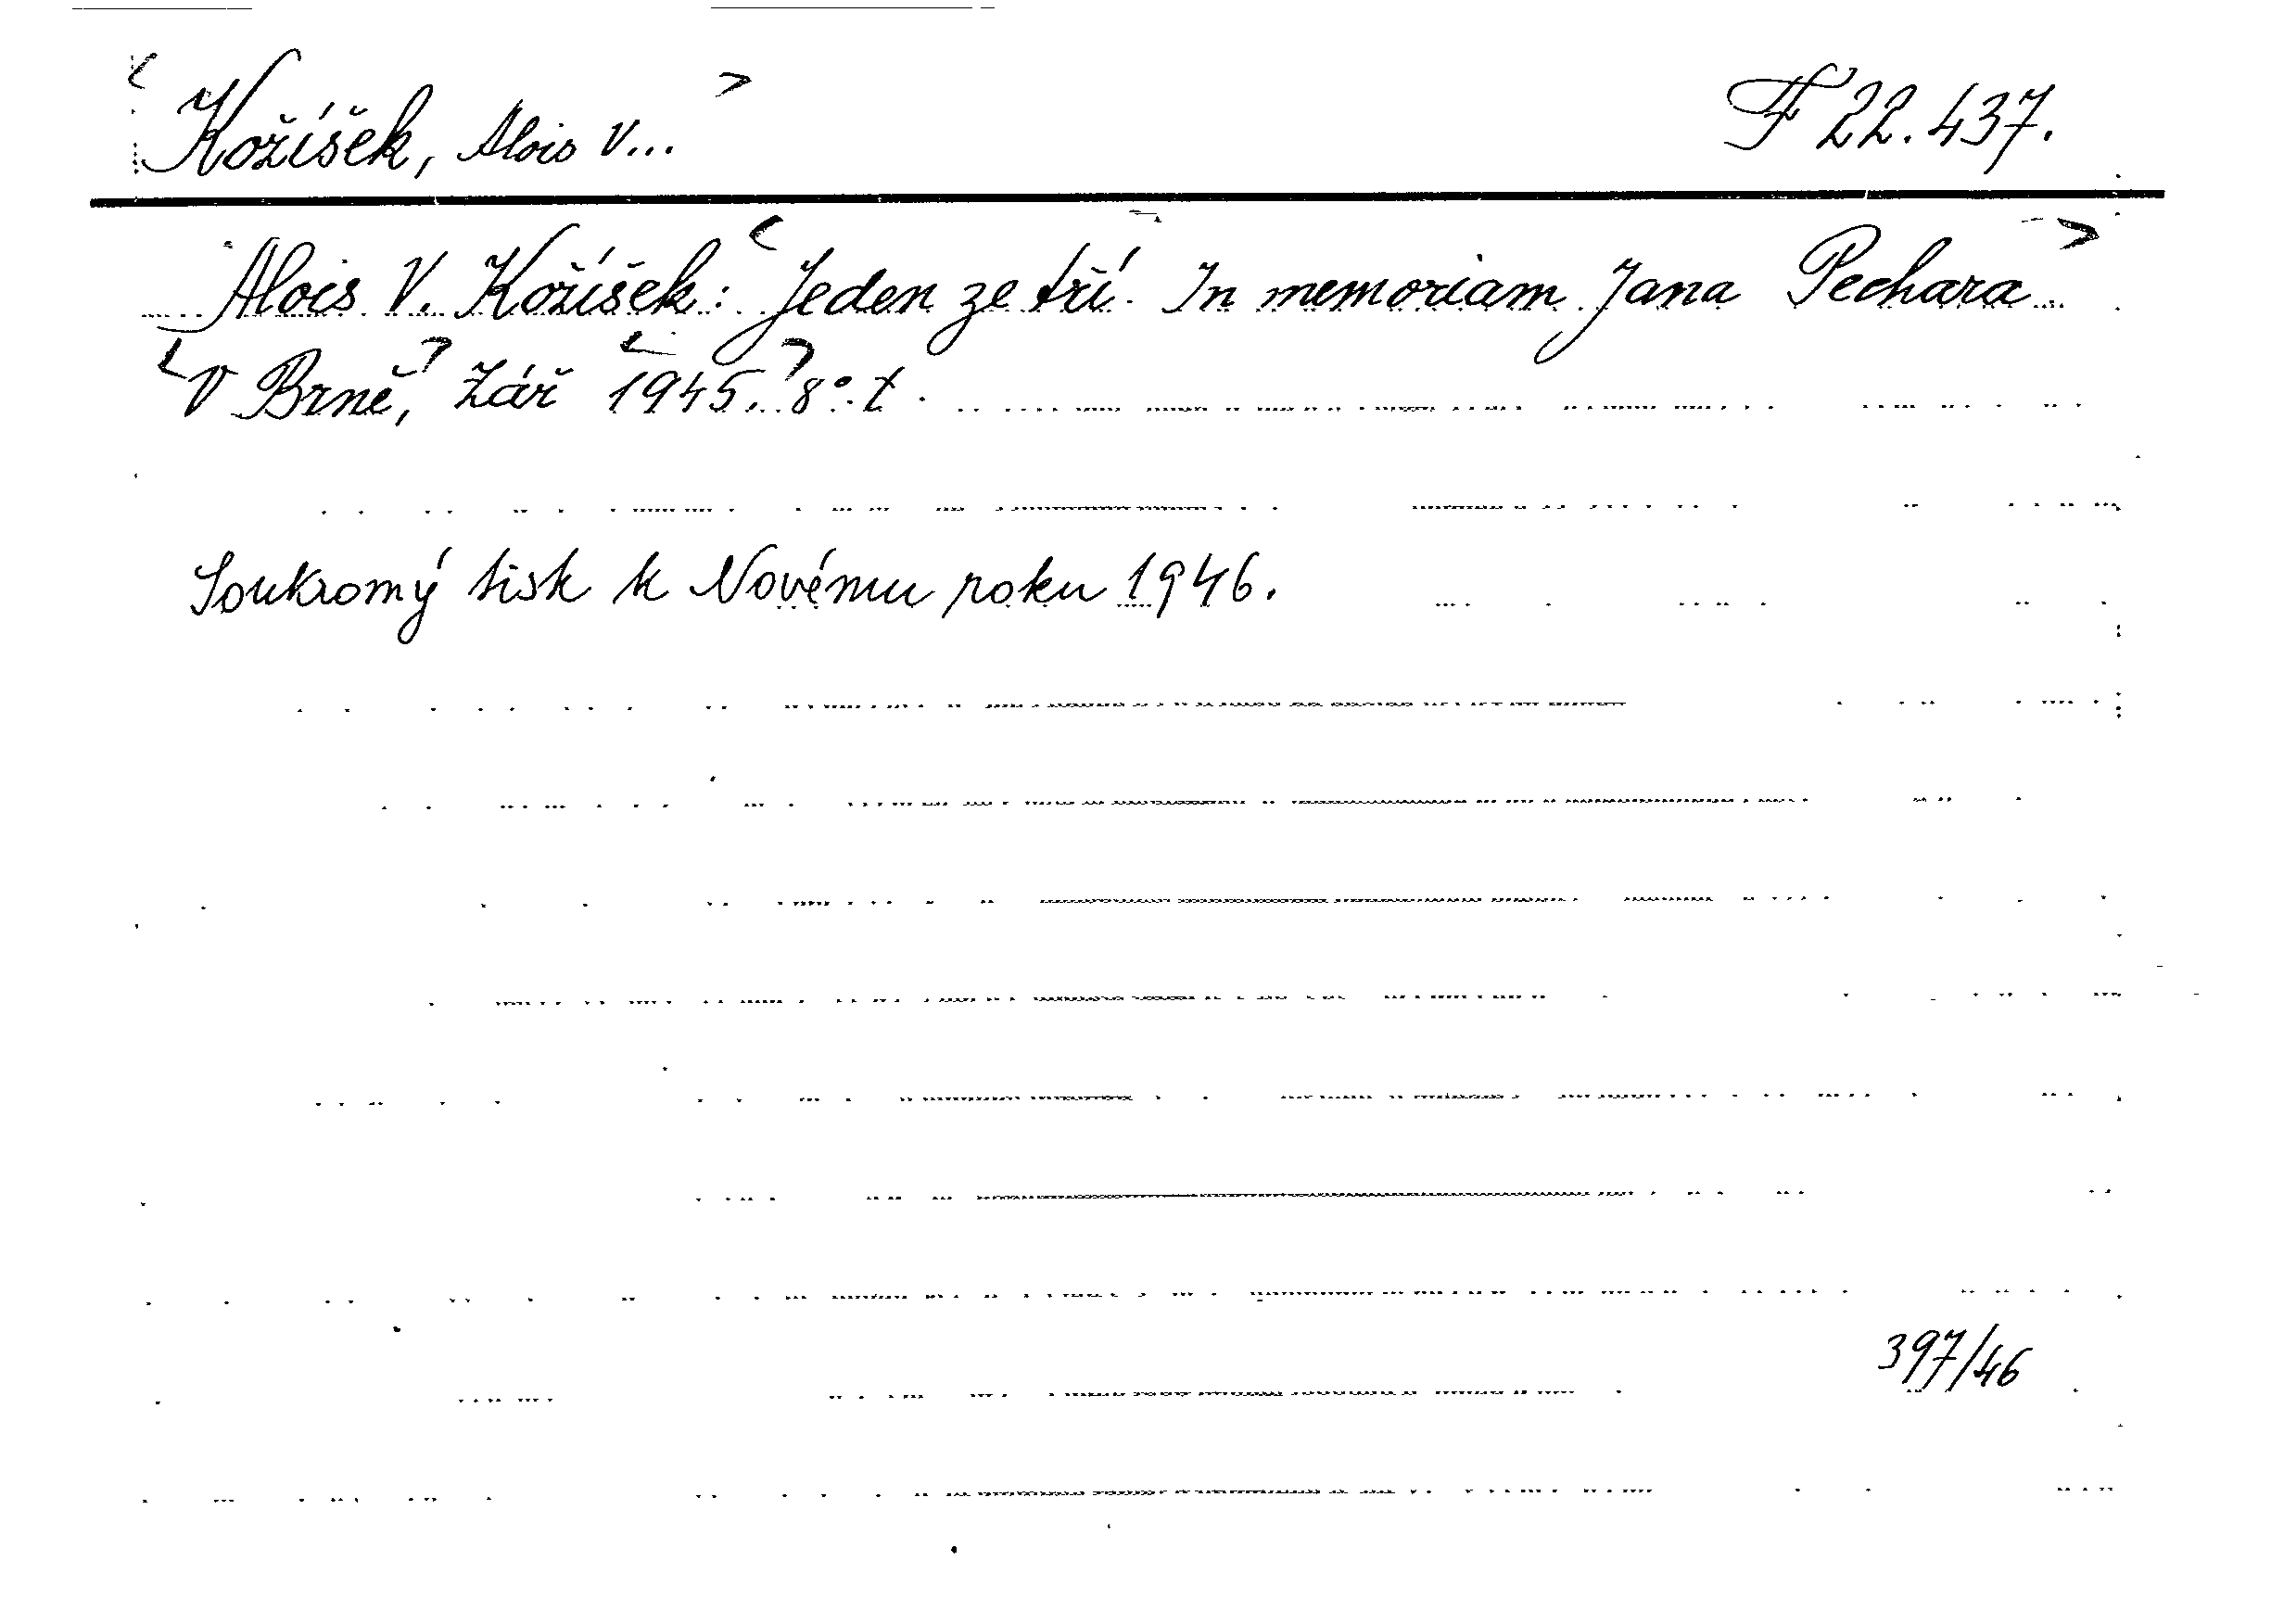 <Kožíšek, Alois V...> F 22.437.
Alois V. Kožíšek: <Jeden ze tří. In memoriam Jana Pechara>
<V Brně,> Zář <1945.> 8°. t.
Soukromý tisk k Novému roku 1946.
397/46